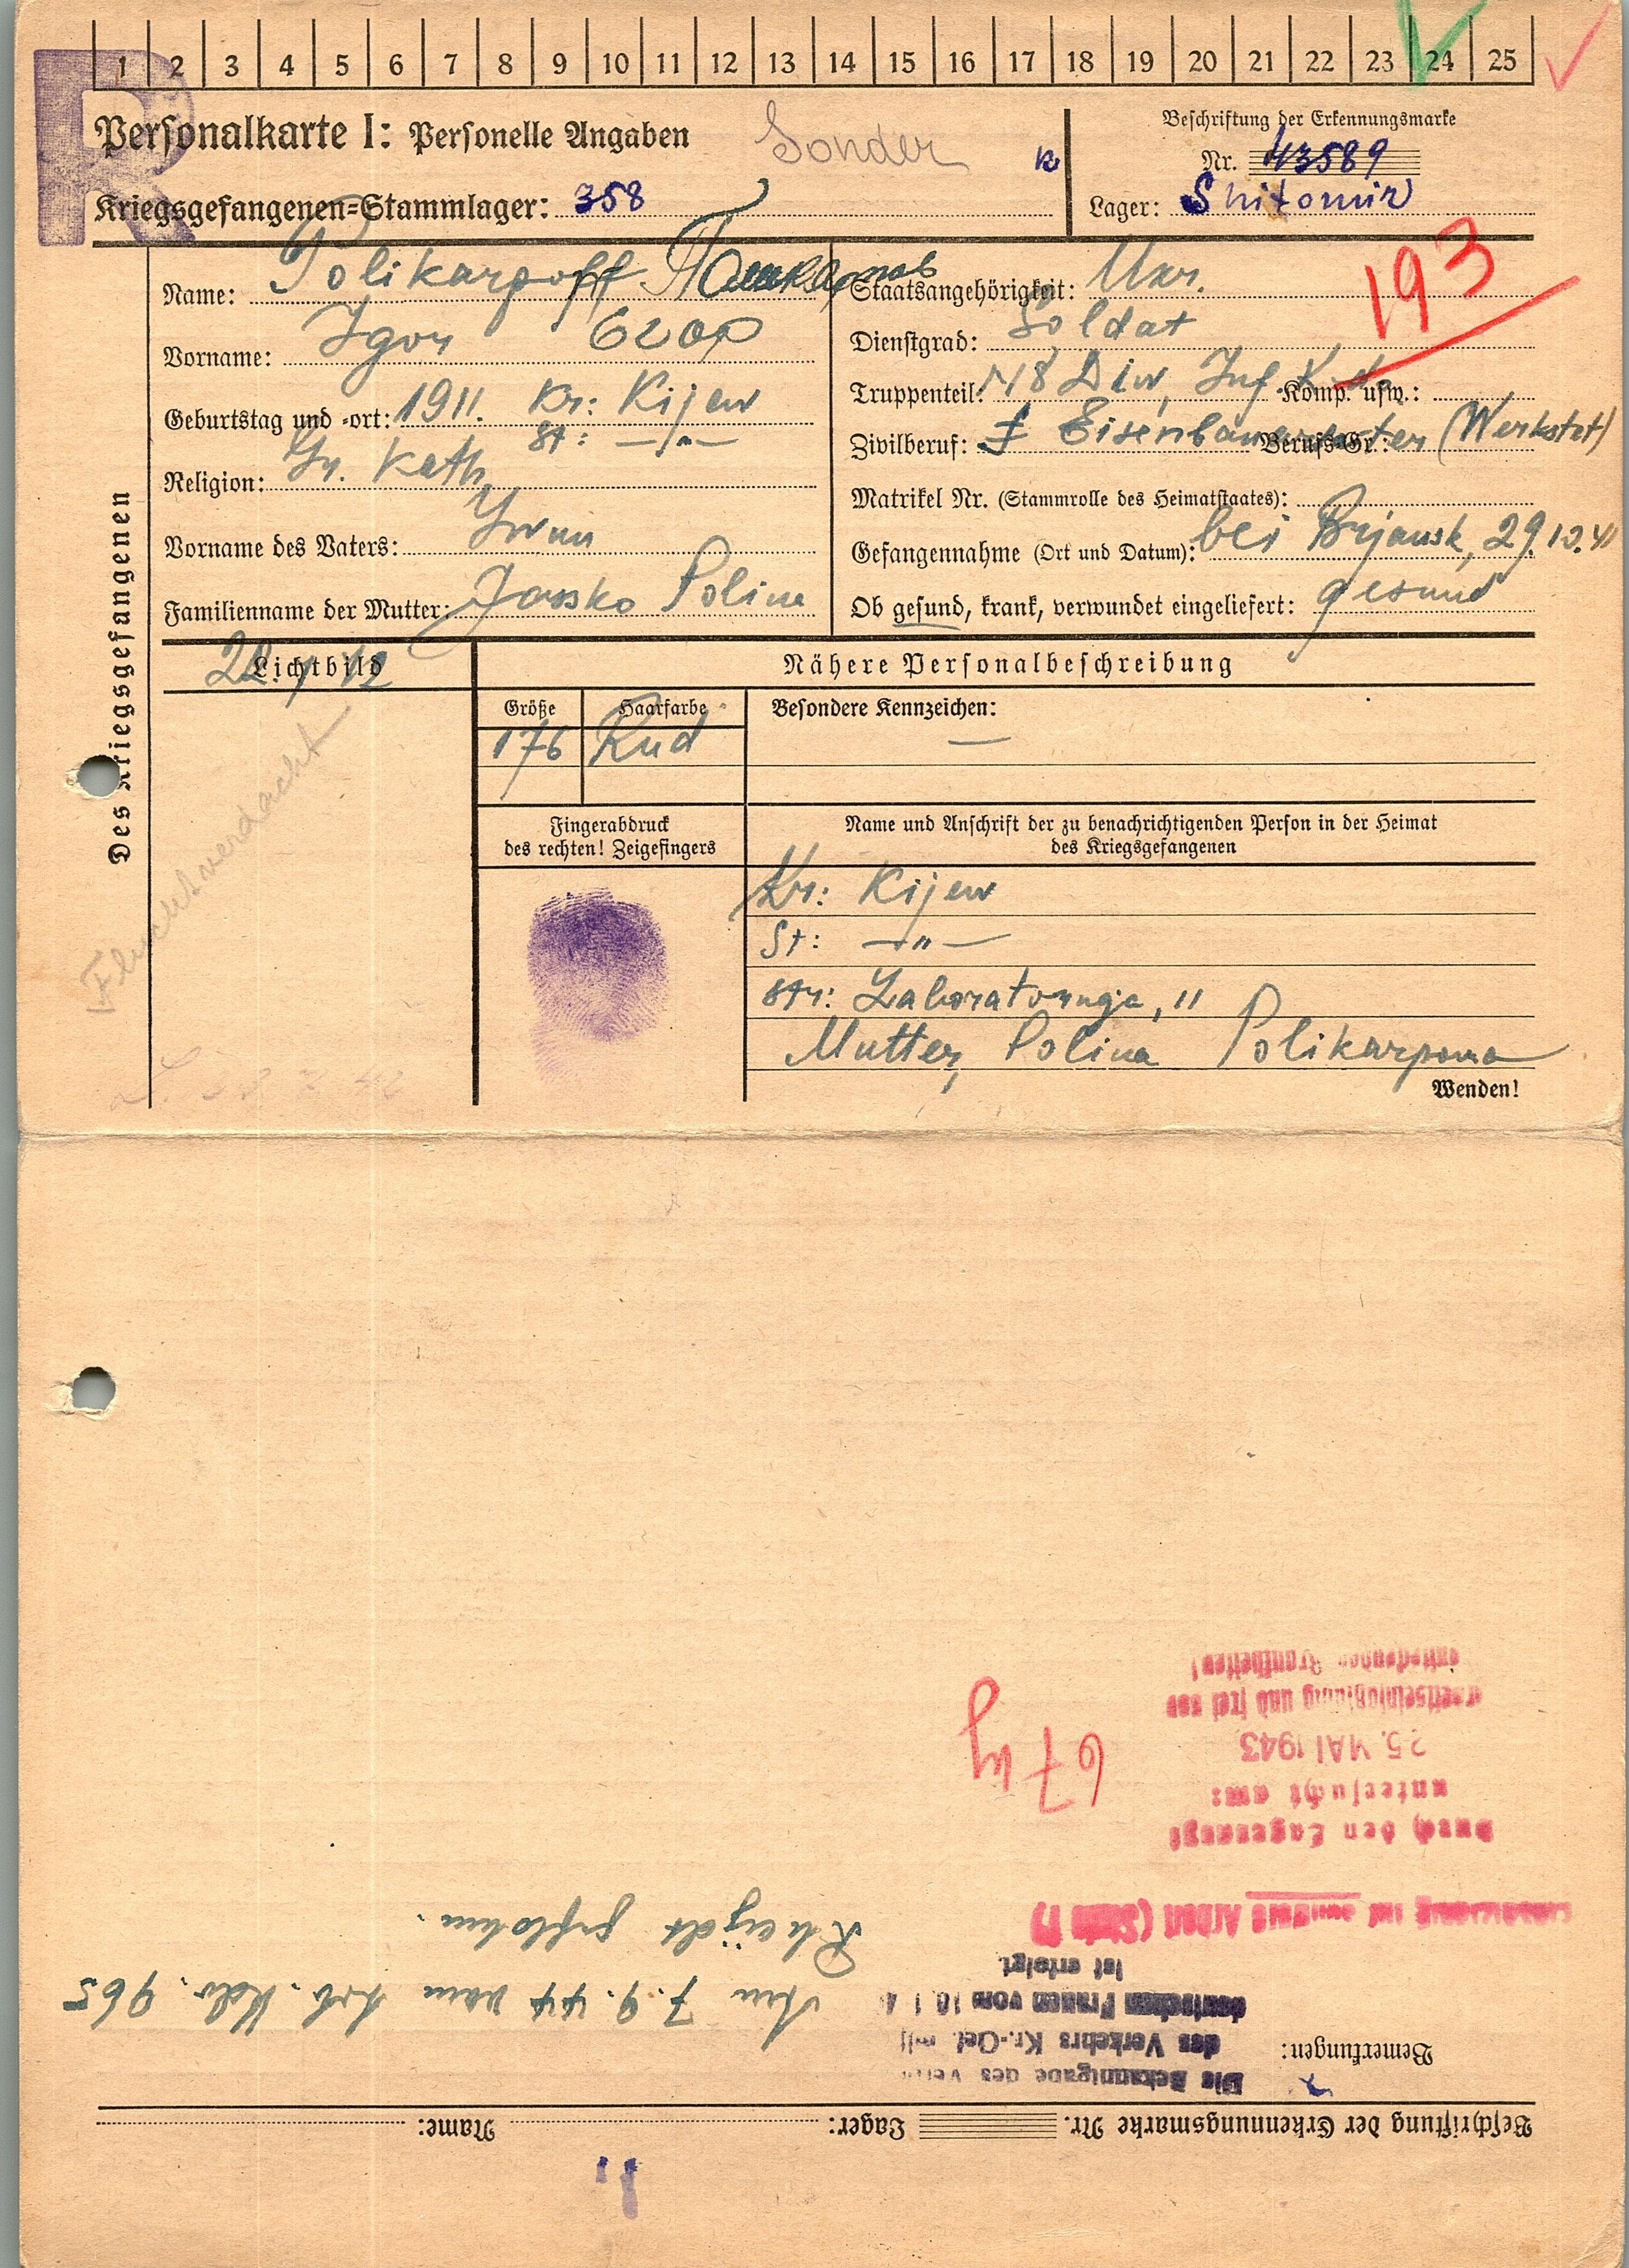 1 2 3 4 5 6 7 8 9 10 11 12 13 14 15 16 17 18 19 20 21 22 23 24 25
R
Personalkarte I: Personelle Angaben
Sonder
Kriegsgefangenen-Stammlager: 358
Beschriftung der Erkennungsmarke
Nr. 43589
Lager: Shitomir
193
Des Kriegsgefangenen
Name: Polikarpoff
Vorname: Igor
Geburtstag und -ort: 1911. Kr: Kijew
St: —"—
Religion: Gr. Kath
Vorname des Vaters: Iwan
Familienname der Mutter: Jassko Polina
Staatsangehörigkeit: Ukr.
Dienstgrad: Soldat
Truppenteil: Diw, Inf. Komp. usw.:
Zivilberuf: (Werkstat) Berufs-Gr.:
Matrikel Nr. (Stammrolle des Heimatstaates):
Gefangennahme (Ort und Datum): bei Brjansk, 29.10.41
Ob gesund, krank, verwundet eingeliefert: gesund
Lichtbild
Fluchtverdacht
Nähere Personalbeschreibung
Größe Haarfarbe Besondere Kennzeichen:
176 Rud —
Fingerabdruck
des rechten! Zeigefingers
Name und Anschrift der zu benachrichtigenden Person in der Heimat
des Kriegsgefangenen
Kr: Kijew
St: —"—
Str: 11
Mutter, Polina Polikarpowa
Wenden!
Beschriftung der Erkennungsmarke Nr. Lager: Name:
Bemerkungen:
Die Bekanntgabe des
des Verkehrs Kr.-Gef. mit
deutschen Frauen vom
ist erfolgt
Am 7.9.44 vom Arb. Kdo. 965
Rheydt geflohen.
Arbeit
Durch den Lagerarzt
untersucht am:
25. MAI 1943
und frei von
ansteckenden Krankheiten!
67 kg